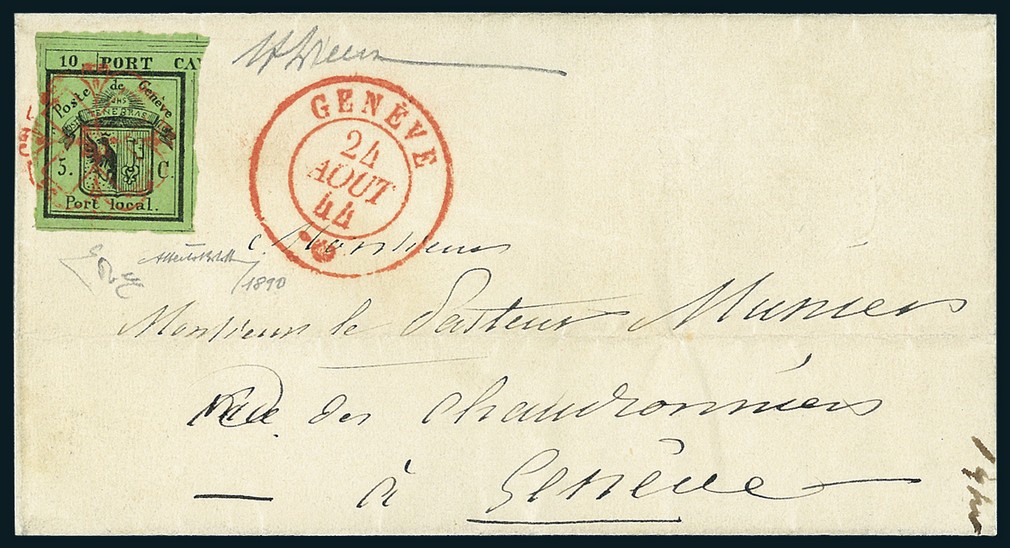 10 PORT CA
Poste de Genève
JHS
TENEBRAS
5. C.
Port local.
GENÈVE
24
AOUT
44
Monsieur
/1890
Monsieur le Pasteur Munier
Rue des Chaudronniers
à Genève